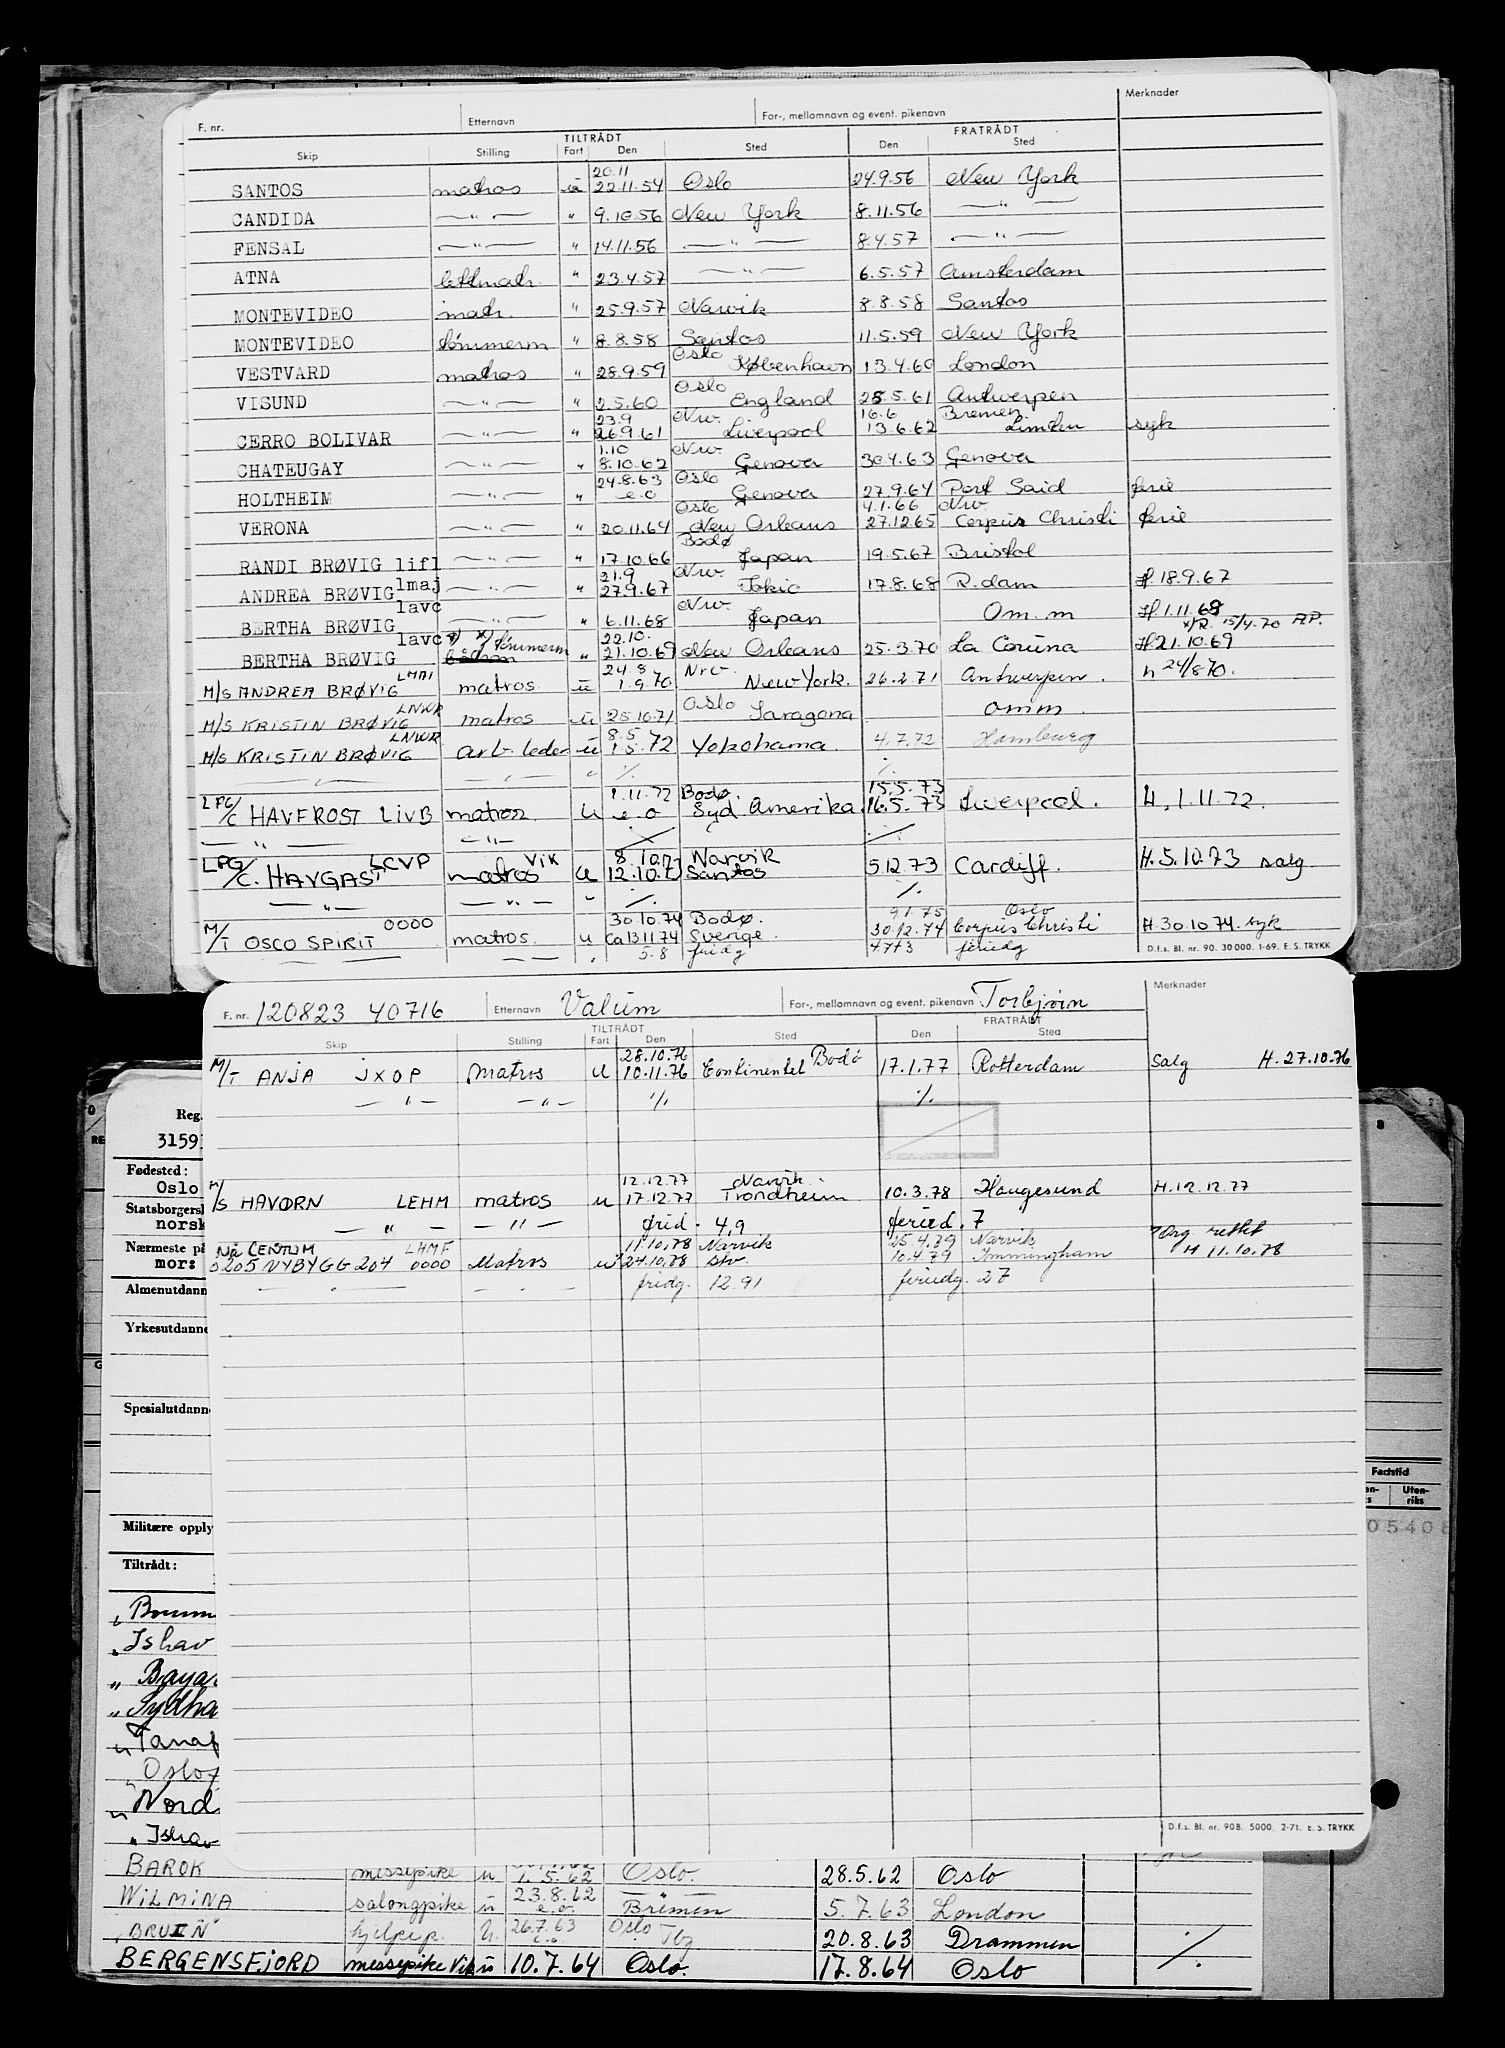 F. nr. Etternavn For-, mellomnavn og event. pikenavn Merknader
TILTRÅDT FRATRÅDT
Skip Stilling Fart Den Sted Den Sted
20.11
SANTOS matros u 22.11.54 Oslo 24.9.56 New York
CANDIDA — " — " 9.10.56 New York 8.11.56 — " —
FENSAL — " — " 14.11.56 — " — 8.4.57 — " —
ATNA lettmatr. " 23.4.57 — " — 6.5.57 Amsterdam
MONTEVIDEO matr. " 25.9.57 Narvik 8.8.58 Santos
MONTEVIDEO tømmerm " 8.8.58 Santos 11.5.59 New York
Oslo
VESTVARD matros " 28.9.59 København 13.4.60 London
Oslo
VISUND — " — " 2.5.60 England 28.5.61 Antwerpen
23.9 Nrv. 16.6 Bremen
CERRO BOLIVAR — " — " 26.9.61 Liverpool 13.6.62 syk
1.10 Nrv.
CHATEUGAY — " — " 8.10.62 Genova 30.4.63 Genova
24.8.63 Oslo
HOLTHEIM — " — " e.o Genova 27.9.64 Port Said ferie
Oslo 4.1.66 Nrv
VERONA — " — " 20.11.64 New Orleans 27.12.65 Corpus Christi ferie
Bodø
RANDI BRØVIG lifl — " — " 17.10.66 Japan 19.5.67 Bristol
21.9 Nrv.
ANDREA BRØVIG lmaj — " — " 27.9.67 Tokio 17.8.68 R.dam H.18.9.67
Nrv.
BERTHA BRØVIG lavc — " — " 6.11.68 Japan Om.m H.1.11.68
x/R. 15/4.70 A.P.
22.10.
BERTHA BRØVIG lavc x) tømmerm " 21.10.69 New Orleans 25.3.70 La Coruna H21.10.69
24.8 Nrv
M/S ANDREA BRØVIG LMAI matros u 1.9.70 New York. 26.2.71 Antwerpen. h 24/8 70.
Oslo
M/S KRISTIN BRØVIG LNWR matros u 25.10.71 Taragona omm.
8.5
M/S KRISTIN BRØVIG LNWR arb. leder u 1.5.72 Yokohama. 4.7.72 Hamburg
— " — — " — " ./. ./.
1.11.72 Bodø. 15.5.73
LPG/C HAVFROST LIVB matros. u e.o Syd Amerika. 16.5.73 Liverpool. H, 1.11.72.
— " — — " — ./. ./.
8.10.73 Narvik
LPG/C. HAVGAST LCVP matros VIK u 12.10.73 Santos 5.12.73 Cardiff. H.5.10.73 salg
— " — — " — " ./. ./.
30.10.74 Bodø. 9.1.75 Oslo
M/T OSCO SPIRIT 0000 matros. u ca 13.11.74 Sverige. 30.12.74 Corpus Christi H.30.10.74. syk
5.8 frid g 47+3 feriedg
D.f.s. Bl. nr. 90. 30 000. 1-69. E. S. TRYKK
F. nr. 120823 40716 Etternavn Valum For-, mellomnavn og event. pikenavn Torbjørn Merknader
TILTRÅDT FRATRÅDT
Skip Stilling Fart Den Sted Den Sted
28.10.76 Bodø
M/T ANJA JXOP Matros u 10.11.76 Continentet 17.1.77 Rotterdam Salg H.27.10.76
— " — — " — ./. ./.
12.12.77 Narvik.
M/S HAVØRN LEHM matros u 17.12.77 Trondheim 10.3.78 Haugesund H.12.12.77
— " — — " — frid. 4,9 feried. 7
Nå CENTUM LHMF 11.10.78 Narvik 25.4.79 Narvik Org rettet
NYBYGG 204 0000 Matros u 24.10.78 stv. 10.4.79 Immingham H 11.10.78
— " — — " — fridg. 12.91 feriedg. 27
D.f.s. Bl. nr. 90B. 5000. 2-71. E. S. TRYKK
Reg.
3159
Fødested:
Oslo
Statsborgersk
norsk
Nærmeste på
mor:
Almenutdann
Yrkesutdanne
Spesialutdann
Militære opply
Tiltrådt:
" Ishav
" Sydha
" Oslof
" Nord
" Ishav
8
Fartstid
Uten-
riks
05408
BAROK messepike u 1.5.62 Oslo. 28.5.62 Oslo
WILMINA salongpike u 23.8.62 — " — 5.7.63 London
e.o. Bremen
BRUIN hjelpep. u. 26.7.63 Oslo 20.8.63 Drammen
e.o. Tbg ./.
BERGENSFJORD messepike Vik u 10.7.64 Oslo. 17.8.64 Oslo